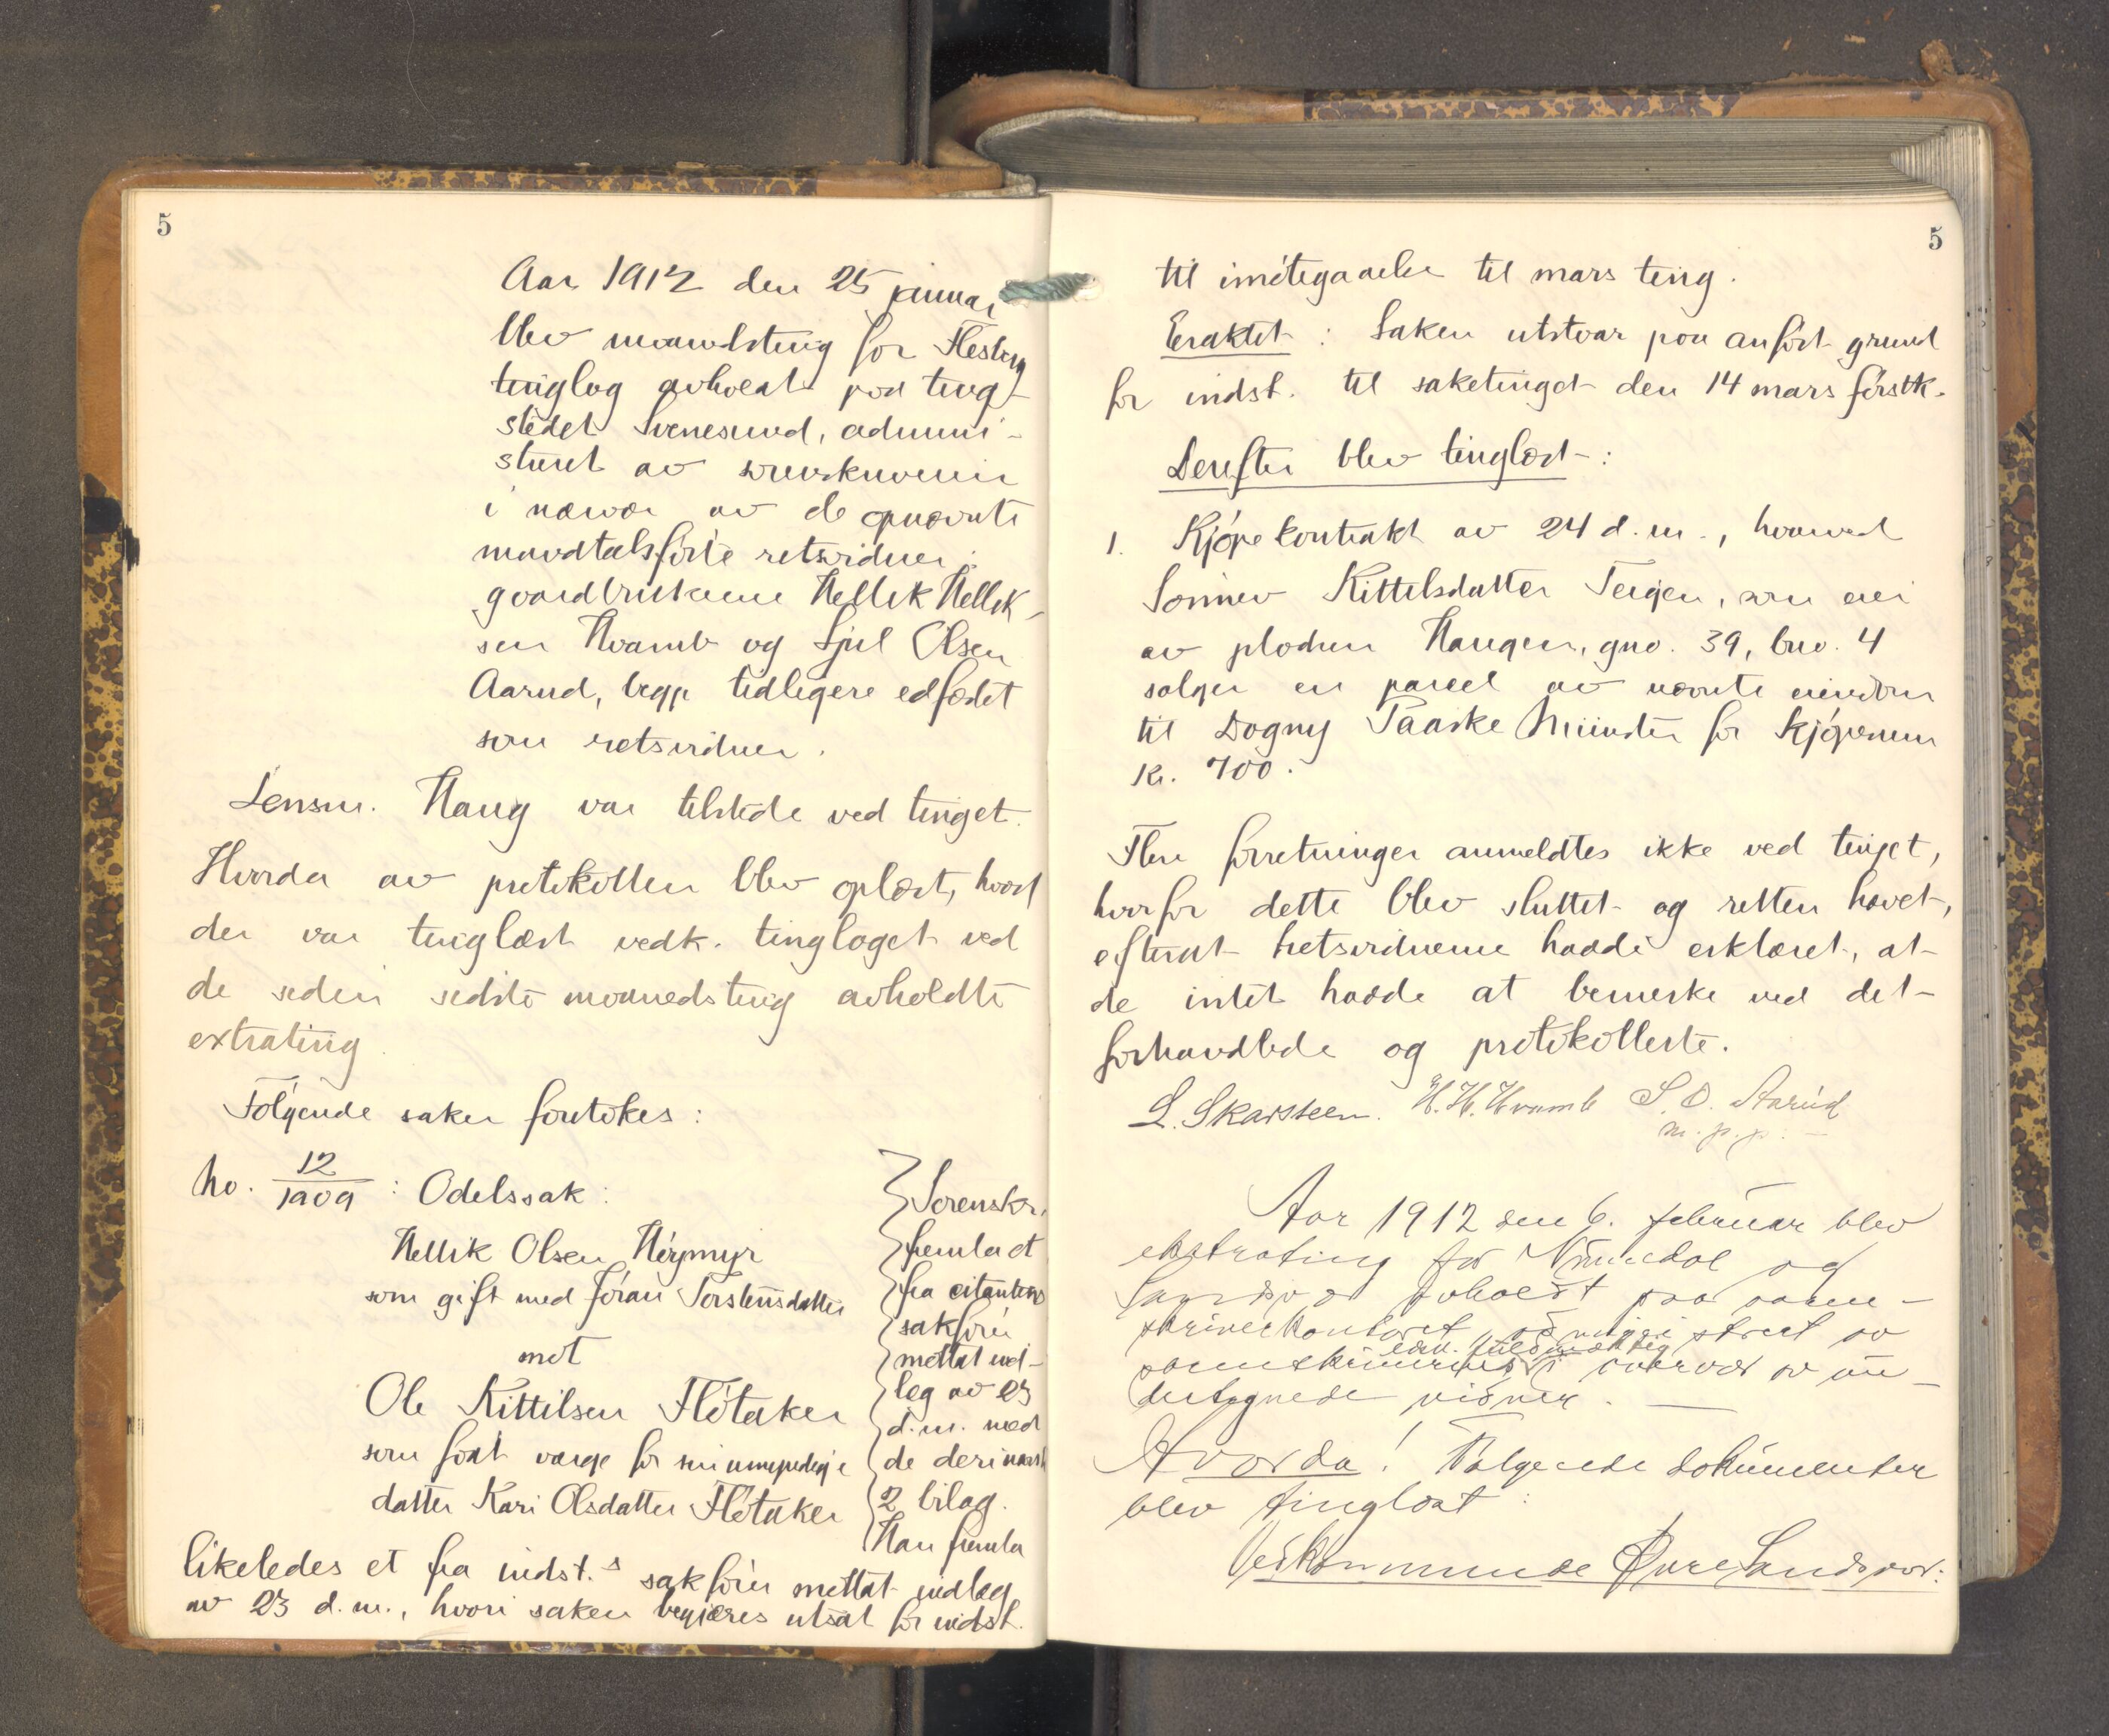 5
Aar 1912 den 25 januar
blev maanedsting for Flesberg
tinglag avholdt paa ting-
stedet Svenesund, admini-
streret av sorenskriveren
i nærvær av de opnævnte
mandtalsførte retsvidner:
gaardbrukerne Hellik Hellik-
sen Hvamb og Sjul Olsen
Aarud, begge tidligere edfæstet
som retsvidner.
Lensm. Haug var tilstede ved tinget.
Hvorda av protokollen blev oplæst, hvad
der var tinglæst vedk. tinglaget ved
de siden sidste maanedsting avholdte
extrating.
Følgende saker foretokes:
No. 12/1909: Odelssak:
Hellik Olsen Høymyr
som gift med Jøran Torstensdatter
mot
Ole Kittilsen Fløtaker
som født værge for sin umyndige
datter Kari Olsdatter Fløtaker
Sorenskr.
fremla et
fra citantens
sakfører
mottat ind-
læg av 23
d.m. med
de deri nævnte
2 bilag.
Han fremla
likeledes et fra indst.s sakfører mottat indlæg
av 23 d.m., hvori saken begjæres utsat for indst.
5
til imøtegaaelse til mars ting.
Eraktet: Saken utstaar paa anført grund
for indst. til saketinget den 14 mars førstk.
Derefter blev tinglæst:
1. Kjøpekontrakt av 24 d.m., hvorved
Sønnev Kittelsdatter Teigen, som eier
av pladsen Haugen, gno. 39, bno. 4
sælger en parcel av nævnte eiendom
til Dagny Paaske Münster for kjøpesum
Kr. 700.
Flere forretninger anmeldtes ikke ved tinget,
hvorfor dette blev sluttet og retten hævet,
efterat retsvidnerne hadde erklæret, at
de intet hadde at bemerke ved det
forhandlede og protokollerte.
L. Skarsteen. H. H. Hvamb S. O. Aarud
m. p. p.
Aar 1912 den 6. februar blev
ekstrating for Numedal og
Sandsvær avholdt paa soren-
skriverkontoret, administreret av
sorenskriverens edsv. fuldmægtig i overvær av un-
dertegnede vidner.
Hvorda! Følgende dokumenter
blev tinglæst:
Vedkommende Øvre Sandsvær: